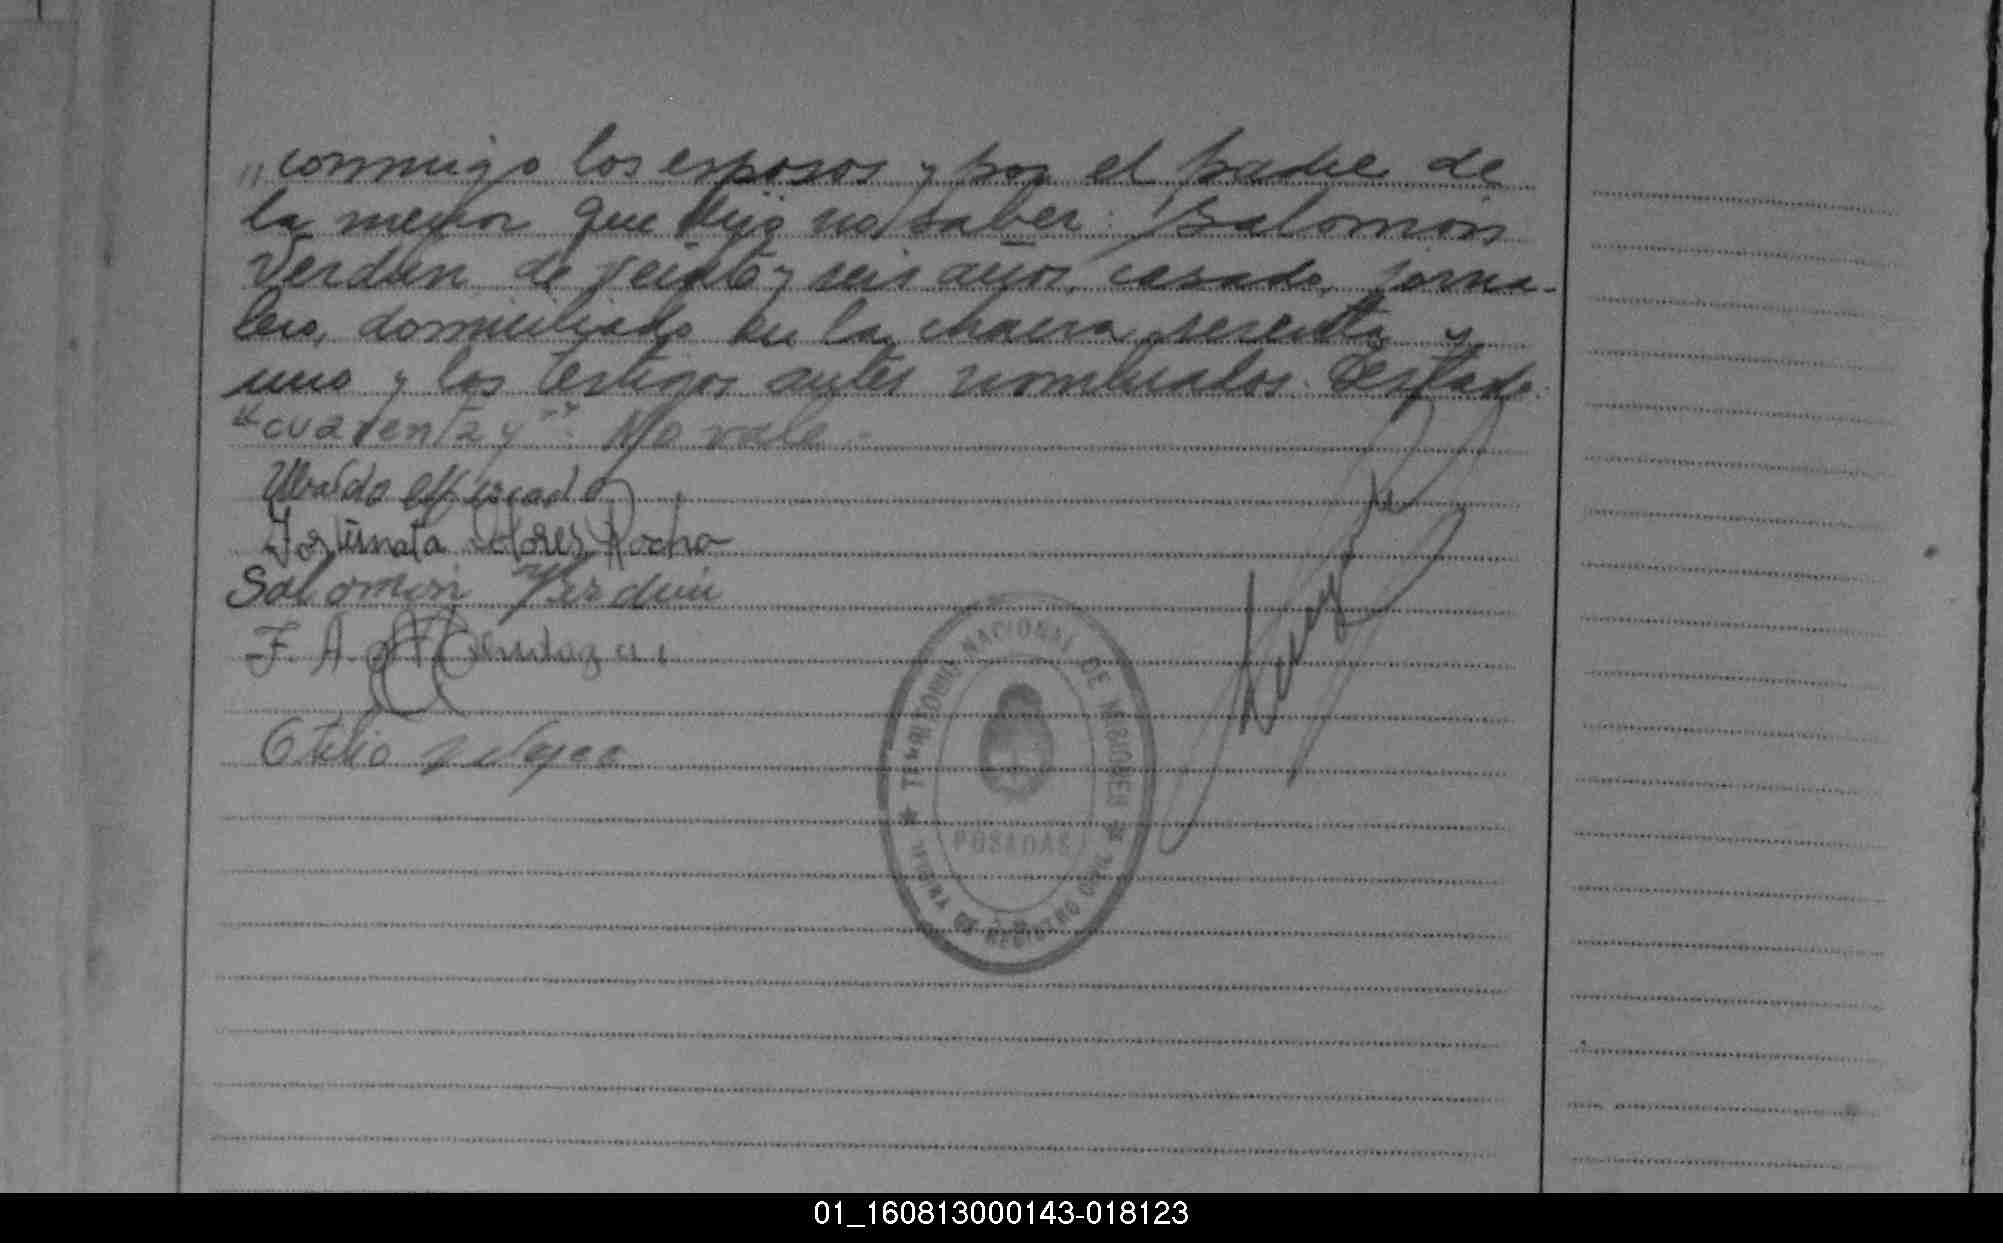 "conmigo los esposos y por el padre de
la menor que dijo no saber: Salomón
Verdun de veinte y seis años, casado, jorna-
lero, domiciliado en la chacra sesenta y
uno y los testigos antes nombrados. Testado:
"cuarenta y": No vale.-
Ubaldo Mercado
Fortunata Dolores Rocha
Salomon Verdun
F. A.
Otilio
TERRITORIO NACIONAL DE MISIONES
POSADAS
OFICINA DE REGISTRO CIVIL
01_160813000143-018123